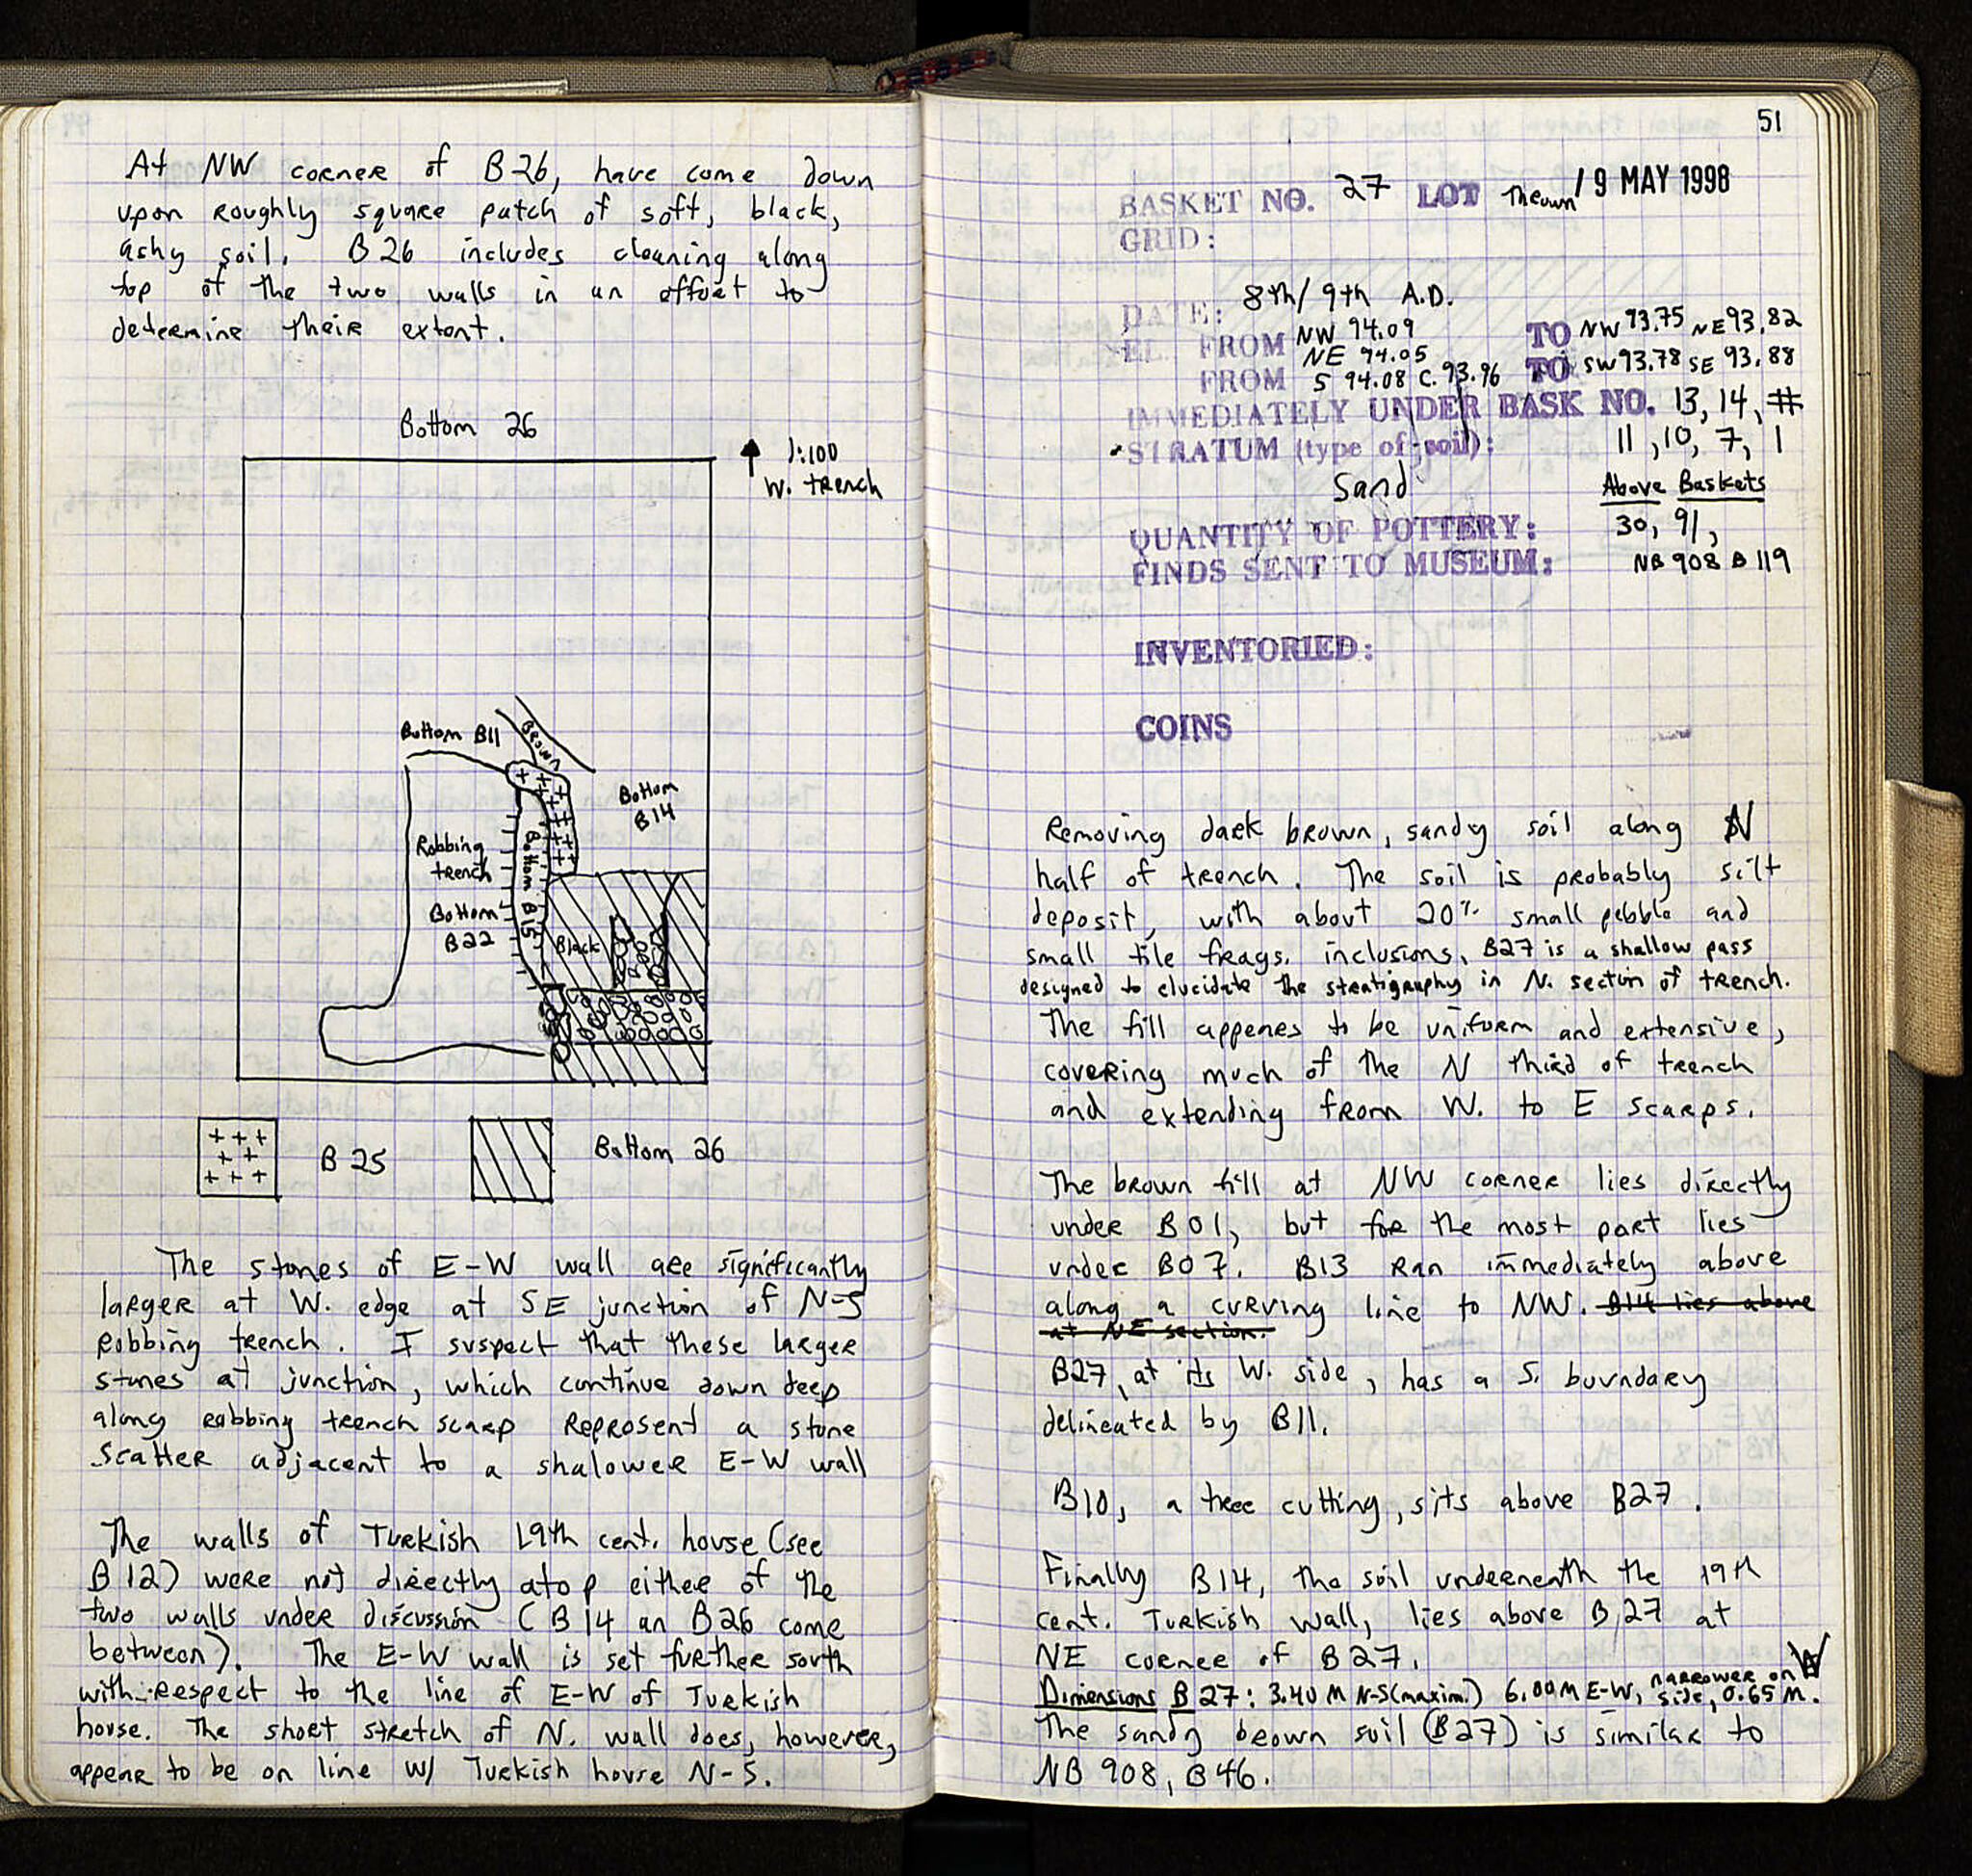 At NW corner of B26, have come down
upon roughly square patch of soft, black,
ashy soil. B26 includes cleaning along
top of the two walls in an effort to
determine their extent.
Bottom 26
1:100
W. trench
Bottom B11
Brown
Bottom
B14
Robbing
trench
Bottom B15
Bottom
B22
Black
B 25
Bottom 26
The stones of E-W wall are significantly
larger at W. edge at SE junction of N-S
Robbing trench. I suspect that these larger
stones at junction, which continue down deep
along robbing trench scarp represent a stone
scatter adjacent to a shalower E-W wall
The walls of Turkish 19th cent. house (see
B12) were not directly atop either of the
two walls under discussion (B14 an B26 come
between). The E-W wall is set further south
with respect to the line of E-W of Turkish
house. The short stretch of N. wall does, however,
appear to be on line w/ Turkish house N-S.
51
BASKET NO. 27 LOT Thrown 19 MAY 1998
GRID:
DATE: 8th/9th A.D.
EL. FROM NW 94.09 TO NW 93.75 NE 93.82
NE 94.05
FROM S 94.08 C. 93.96 TO SW 93.78 SE 93.88
IMMEDIATELY UNDER BASK NO. 13, 14, #
STRATUM (type of soil): 11, 10, 7, 1
Sand
Above Baskets
QUANTITY OF POTTERY: 30, 91,
FINDS SENT TO MUSEUM: NB 908 B 119
INVENTORIED:
COINS
Removing dark brown, sandy soil along N
half of trench. The soil is probably silt
deposit, with about 20% small pebble and
small tile frags. inclusions. B27 is a shallow pass
designed to elucidate the stratigraphy in N. section of trench.
The fill appenes to be uniform and extensive,
covering much of the N third of trench
and extending from W. to E scarps.
The brown fill at NW corner lies directly
under B01, but for the most part lies
under B07. B13 ran immediately above
along a curving line to NW. B14 lies above
at NE section.
B27, at its W. side, has a S. boundary
delineated by B11.
B10, a tree cutting, sits above B27.
Finally B14, the soil underneath the 19th
cent. Turkish wall, lies above B27 at
NE corner of B27.
Dimensions B27: 3.40 M N-S (maxim.) 6.00 M E-W, narrower on W
side, 0.65 M.
The sandy brown soil (B27) is similar to
NB 908, B46.